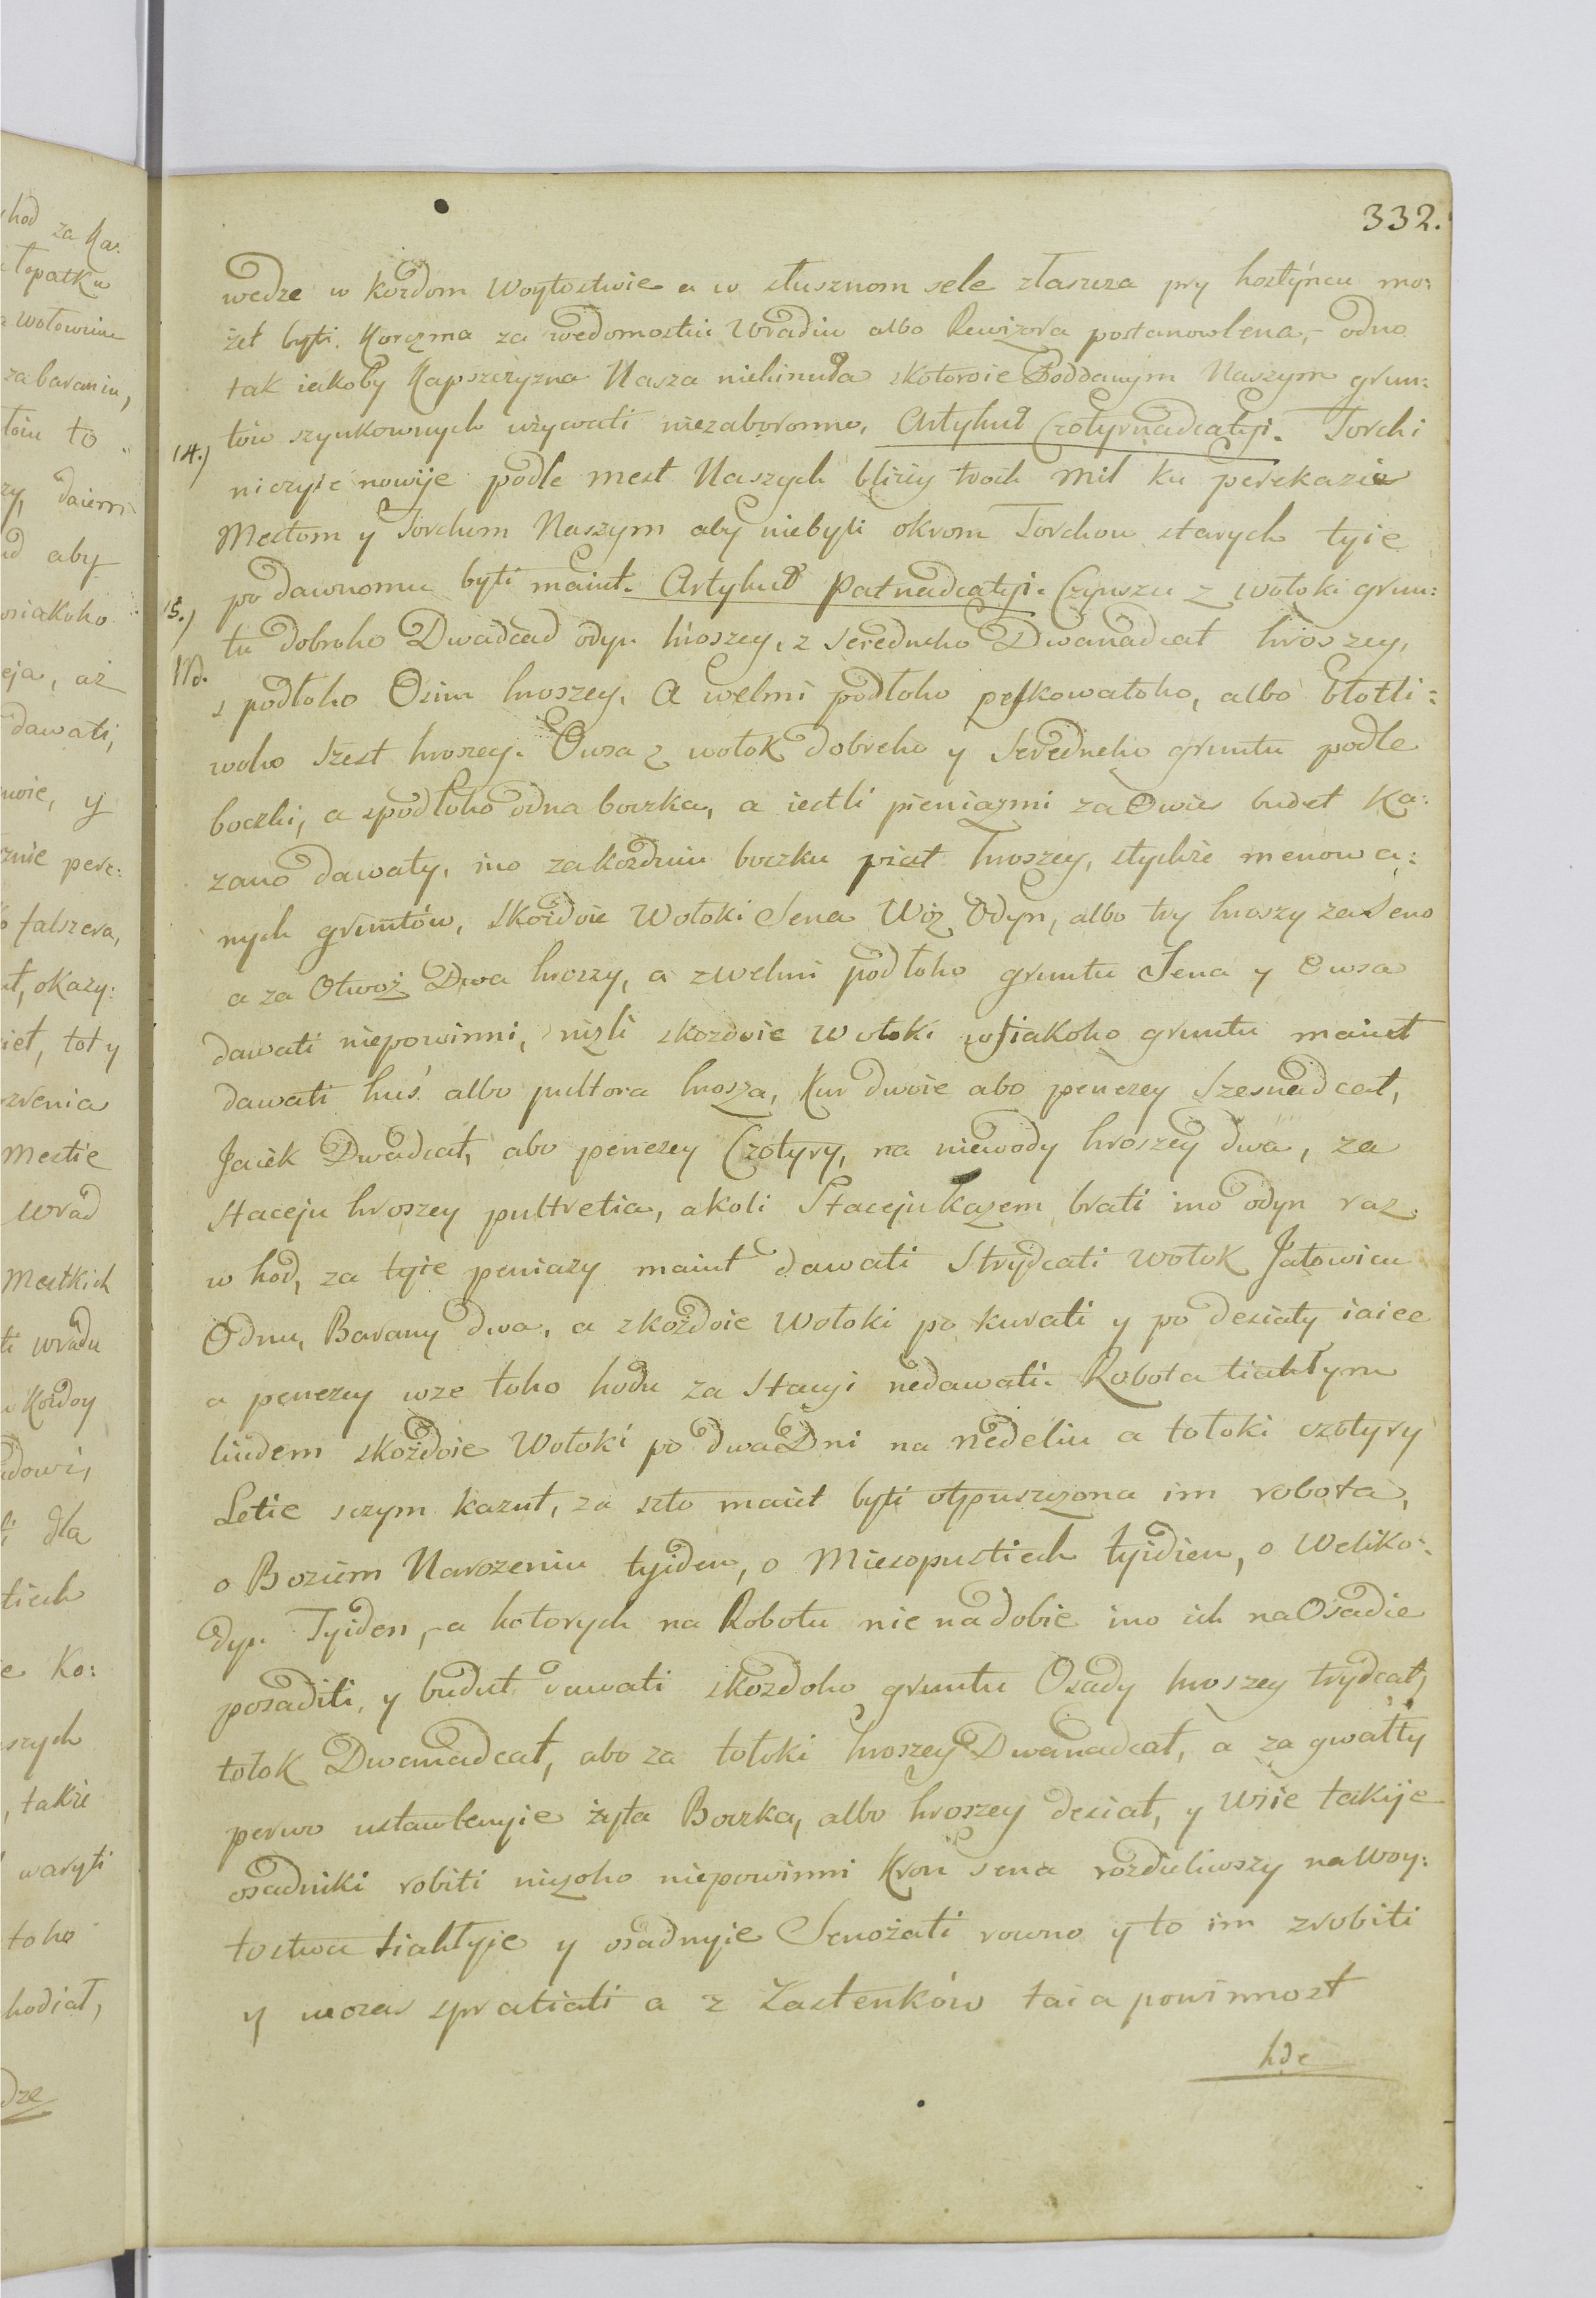 332.
wedze w kożdom Woytostwie a w słusznom sele złaszcza pry hostyńcu mo:
żet byti Korczma za wedomostiu Uradu albo Rewizora postanowlena, odno
tak iakoby Kapszczyzna Nasza niehinuła skotoroie Poddanym Naszym grun:
14.) tów szynkownych używati niezaboronno. Artykuł Czotyrnadcatyi. Torchi
niczyie nowyie podle mest Naszych bliży troch mil ku perekazie
Mestom y Torchom Naszym aby niebyli okrom Torchow starych tyie
15.) po dawnomu byti maiut. Artykuł Patnadcatyi. Czynszu z wołoki grun:
Nd. tu dobroho Dwadcad odyn hroszey, z seredneho Dwanadcat hroszey,
s podłoho Osim hroszey, A welmi podłoho peskowatoho, albo błotli:
woho Szest hroszey. Owsa z wołok dobreho y Seredneho gruntu podle
boczki, a spodłoho odna boczka, a iestli pieniazmi za Owies budet Ka:
zano dawaty, ino zakożduiu boczku piat hroszey, stychże menowa:
nych gruntów, skożdoie Wołoki Sena Woz Odyn, albo try hroszy za Seno
a za Otwoz Dwa hroszy, a zwelmi podłoho gruntu Sena y Owsa
dawati niepowinni, nizli skożdoie Wołoki wsiakoho gruntu maiut
dawati huś albo pultora hrosza, Kur dwoie abo penezey Szesnadcat,
Jaiek Dwadcat, abo penezey Czotyry, na niewody hroszey dwa, za
Staceju hroszey pultretia, akoli Staceju każem brati ino odyn raz
w hod, za tyie peniazy maiut dawati Strydcati wołok Jałowicu
Odnu, Barany dwa, a zkożdoie Wołoki po kurati y po desiaty iaiec
a penezey uze toho hodu za Stacyi nedawati. Robota tiahłym
liudem skożdoie Wołoki po dwa Dni na nedeliu a tołoki czotyry
Letie sczym kazut, za szto maiet byti otpuszczona im robota,
o Bożiem Narożeniu tyiden, o Miesopustiech tyidien, o Weliko:
dyn Tyiden, a kotorych na Robotu nie nadobie ino ich na Osadie
posaditi, y budut dawati skożdoho gruntu Osady hroszey trydcat,
tołok Dwanadcat, abo za tołoki hroszey Dwanadcat, a za gwałty
perwo ustawlenyie żyta Boczka, albo hroszey desiat, y Wsie takije
osadniki robiti niczoho niepowinni Krom sena rozdieliwszy na Woy:
tostwa tiahłyje y osadnyie Senożati rowno y to im zrobiti
y spratiati a z Zastenków taia powinnost
hde